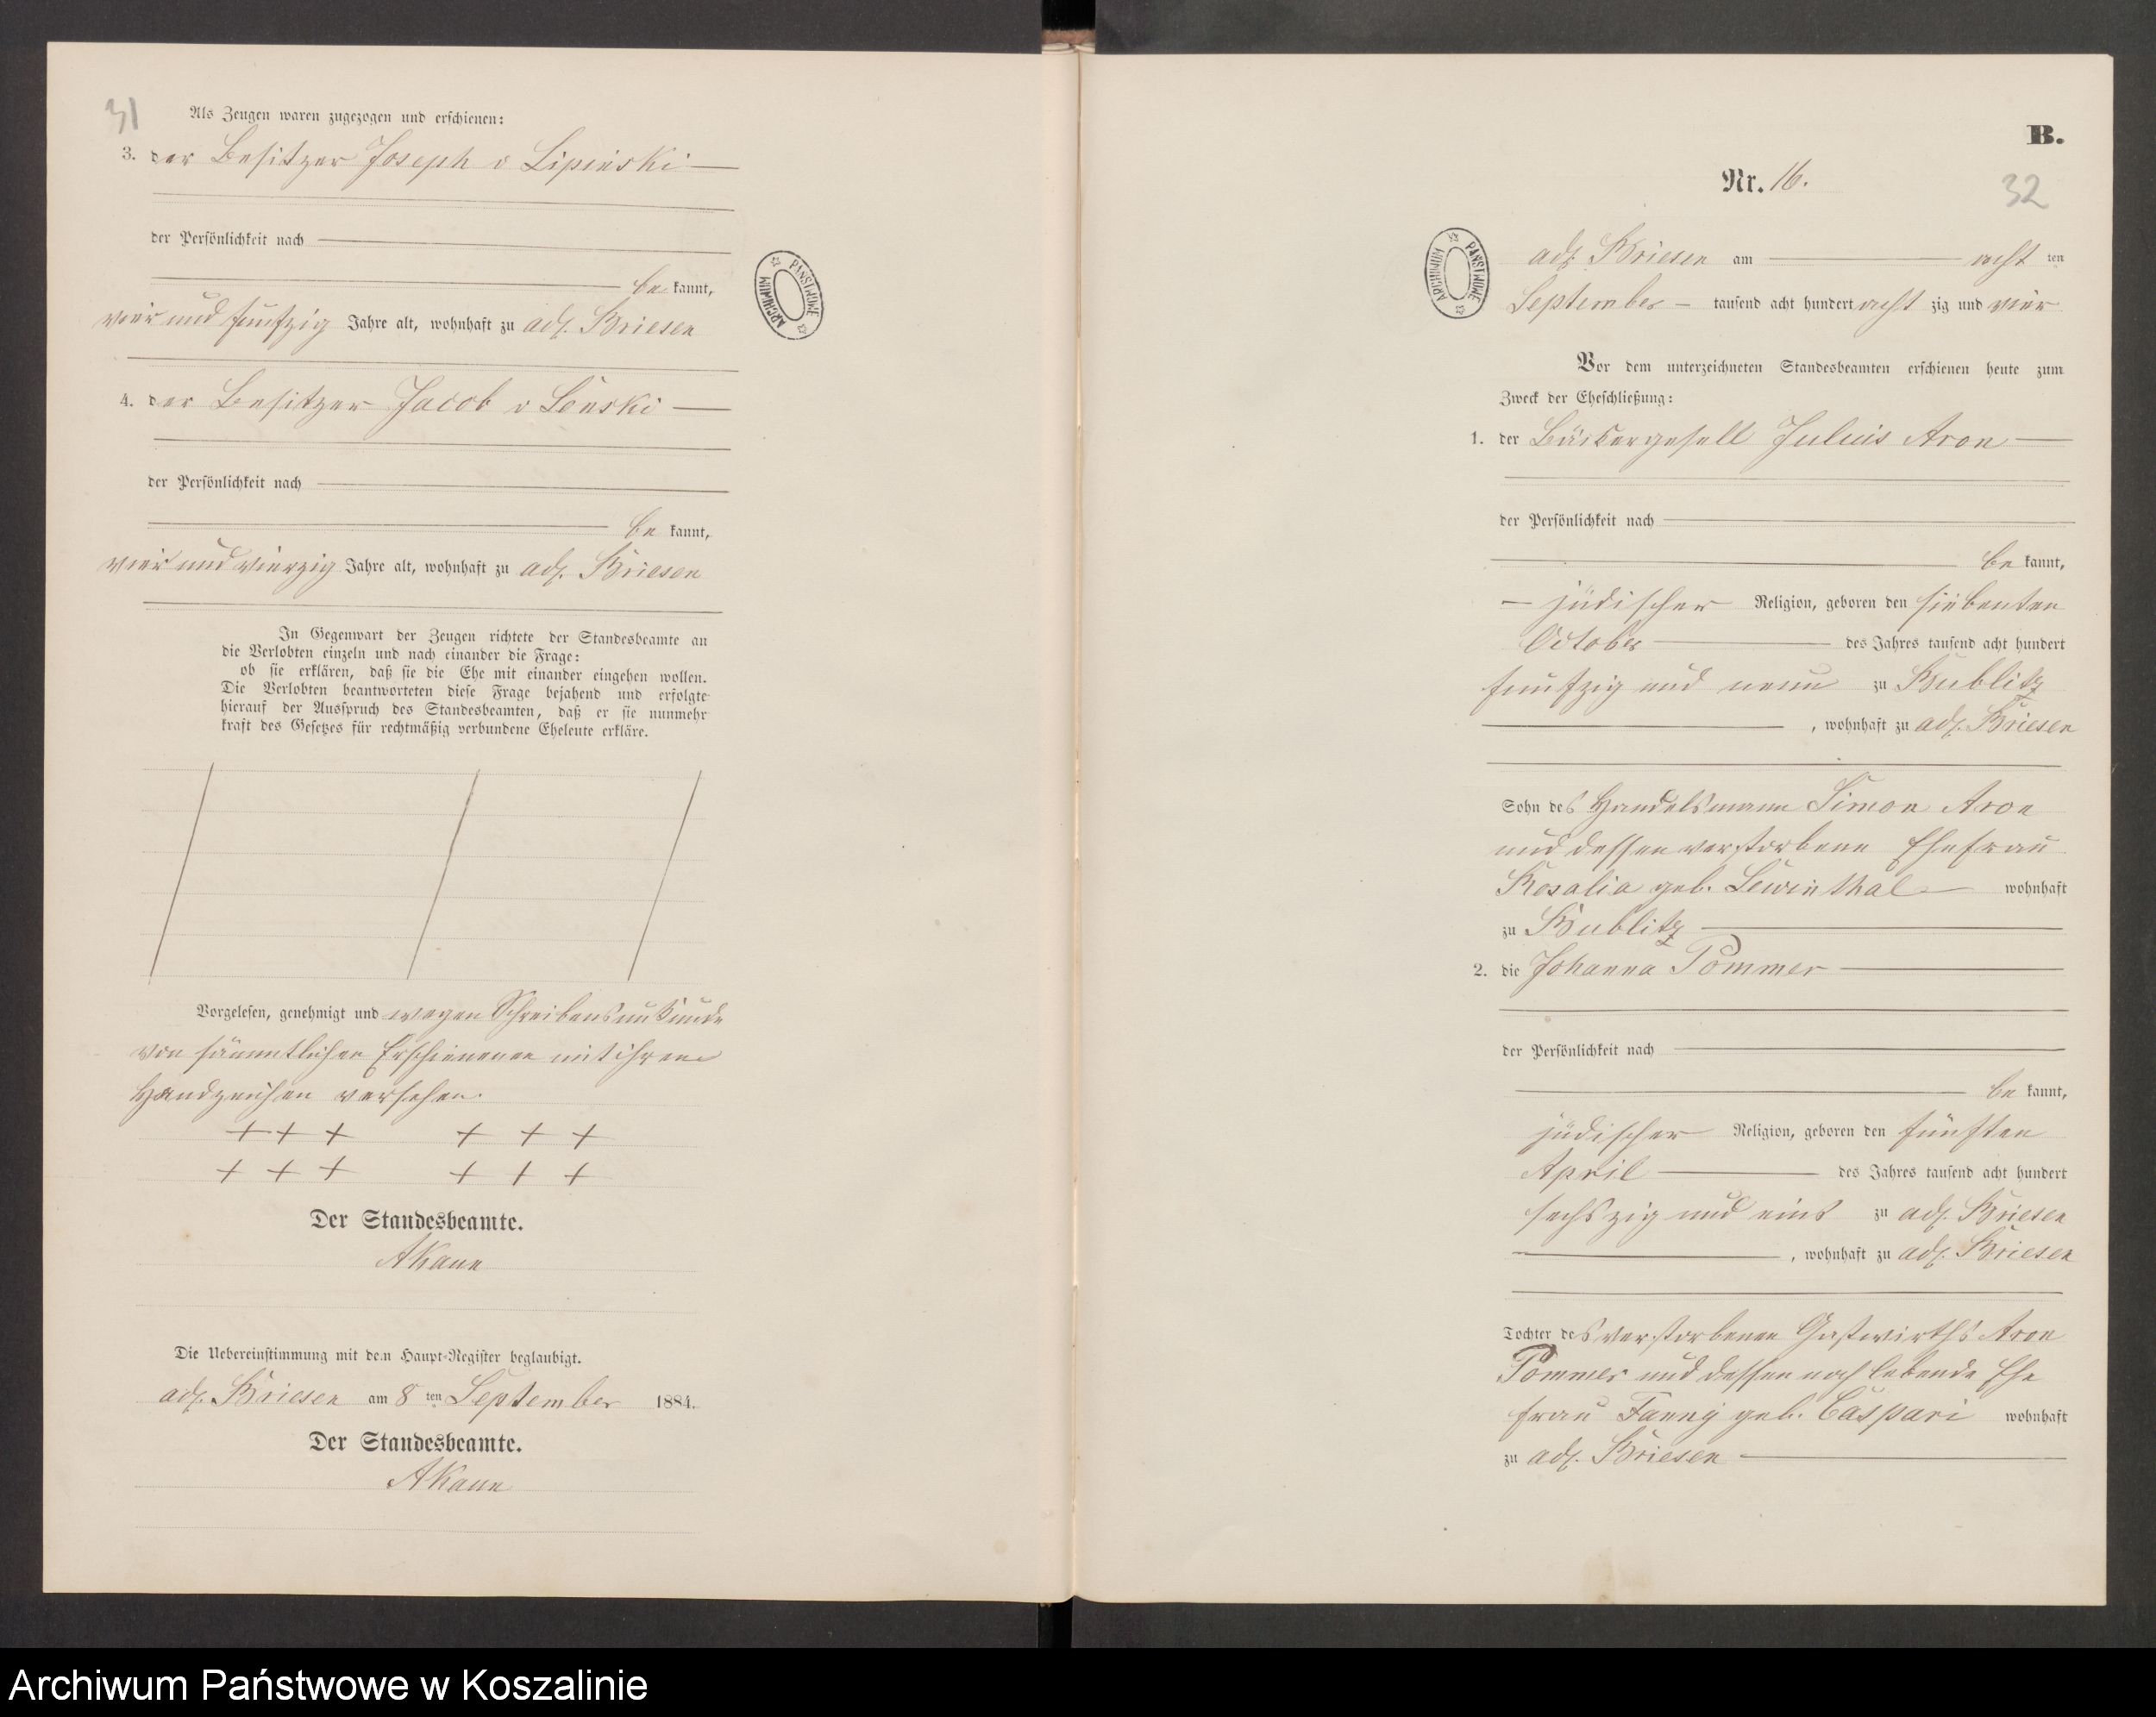 31
Als Zeugen waren zugezogen und erschienen:
3. der Besitzer Joseph v Lipinski
der Persönlichkeit nach
be kannt,
vier und funfzig Jahre alt, wohnhaft zu adl. Briesen
4. der Besitzer Jacob v Lenski
der Persönlichkeit nach
be kannt,
vier und vierzig Jahre alt, wohnhaft zu adl. Briesen
In Gegenwart der Zeugen richtete der Standesbeamte an
die Verlobten einzeln und nach einander die Frage:
ob sie erklären, daß sie die Ehe mit einander eingehen wollen.
Die Verlobten beantworteten diese Frage bejahend und erfolgte
hierauf der Ausspruch des Standesbeamten, daß er sie nunmehr
kraft des Gesetzes für rechtmäßig verbundene Eheleute erkläre.
Vorgelesen, genehmigt und wegen Schreibensunkunde
von sämmtlichen Erschienenen mit ihren
Handzeichen versehen.
+ + + + + +
+ + + + + +
Der Standesbeamte.
Die Uebereinstimmung mit dem Haupt-Register beglaubigt.
adl. Briesen am 8 ten September 1884.
Der Standesbeamte.
ARCHIWUM PAŃSTWOWE
B.
Nr. 16.
32
ARCHIWUM PAŃSTWOWE
adl. Briesen am acht ten
September tausend acht hundert acht zig und vier
Vor dem unterzeichneten Standesbeamten erschienen heute zum
Zweck der Eheschließung:
1. der Bäckergesell Julius Aron
der Persönlichkeit nach
be kannt,
jüdischer Religion, geboren den siebenten
October des Jahres tausend acht hundert
funfzig und neun zu Bublitz
, wohnhaft zu adl. Briesen
Sohn des Handelsmann Simon Aron
und dessen verstorbene Ehefrau
Rosalia geb. Lewinthal wohnhaft
zu Bublitz
2. die Johanna Pommer
der Persönlichkeit nach
be kannt,
jüdischer Religion, geboren den fünften
April des Jahres tausend acht hundert
sechszig und eins zu adl. Briesen
, wohnhaft zu adl. Briesen
Tochter des verstorbenen Gastwirths Aron
Pommer und dessen noch lebende Ehe
frau Fanny geb. Caspari wohnhaft
zu adl. Briesen
Archiwum Państwowe w Koszalinie